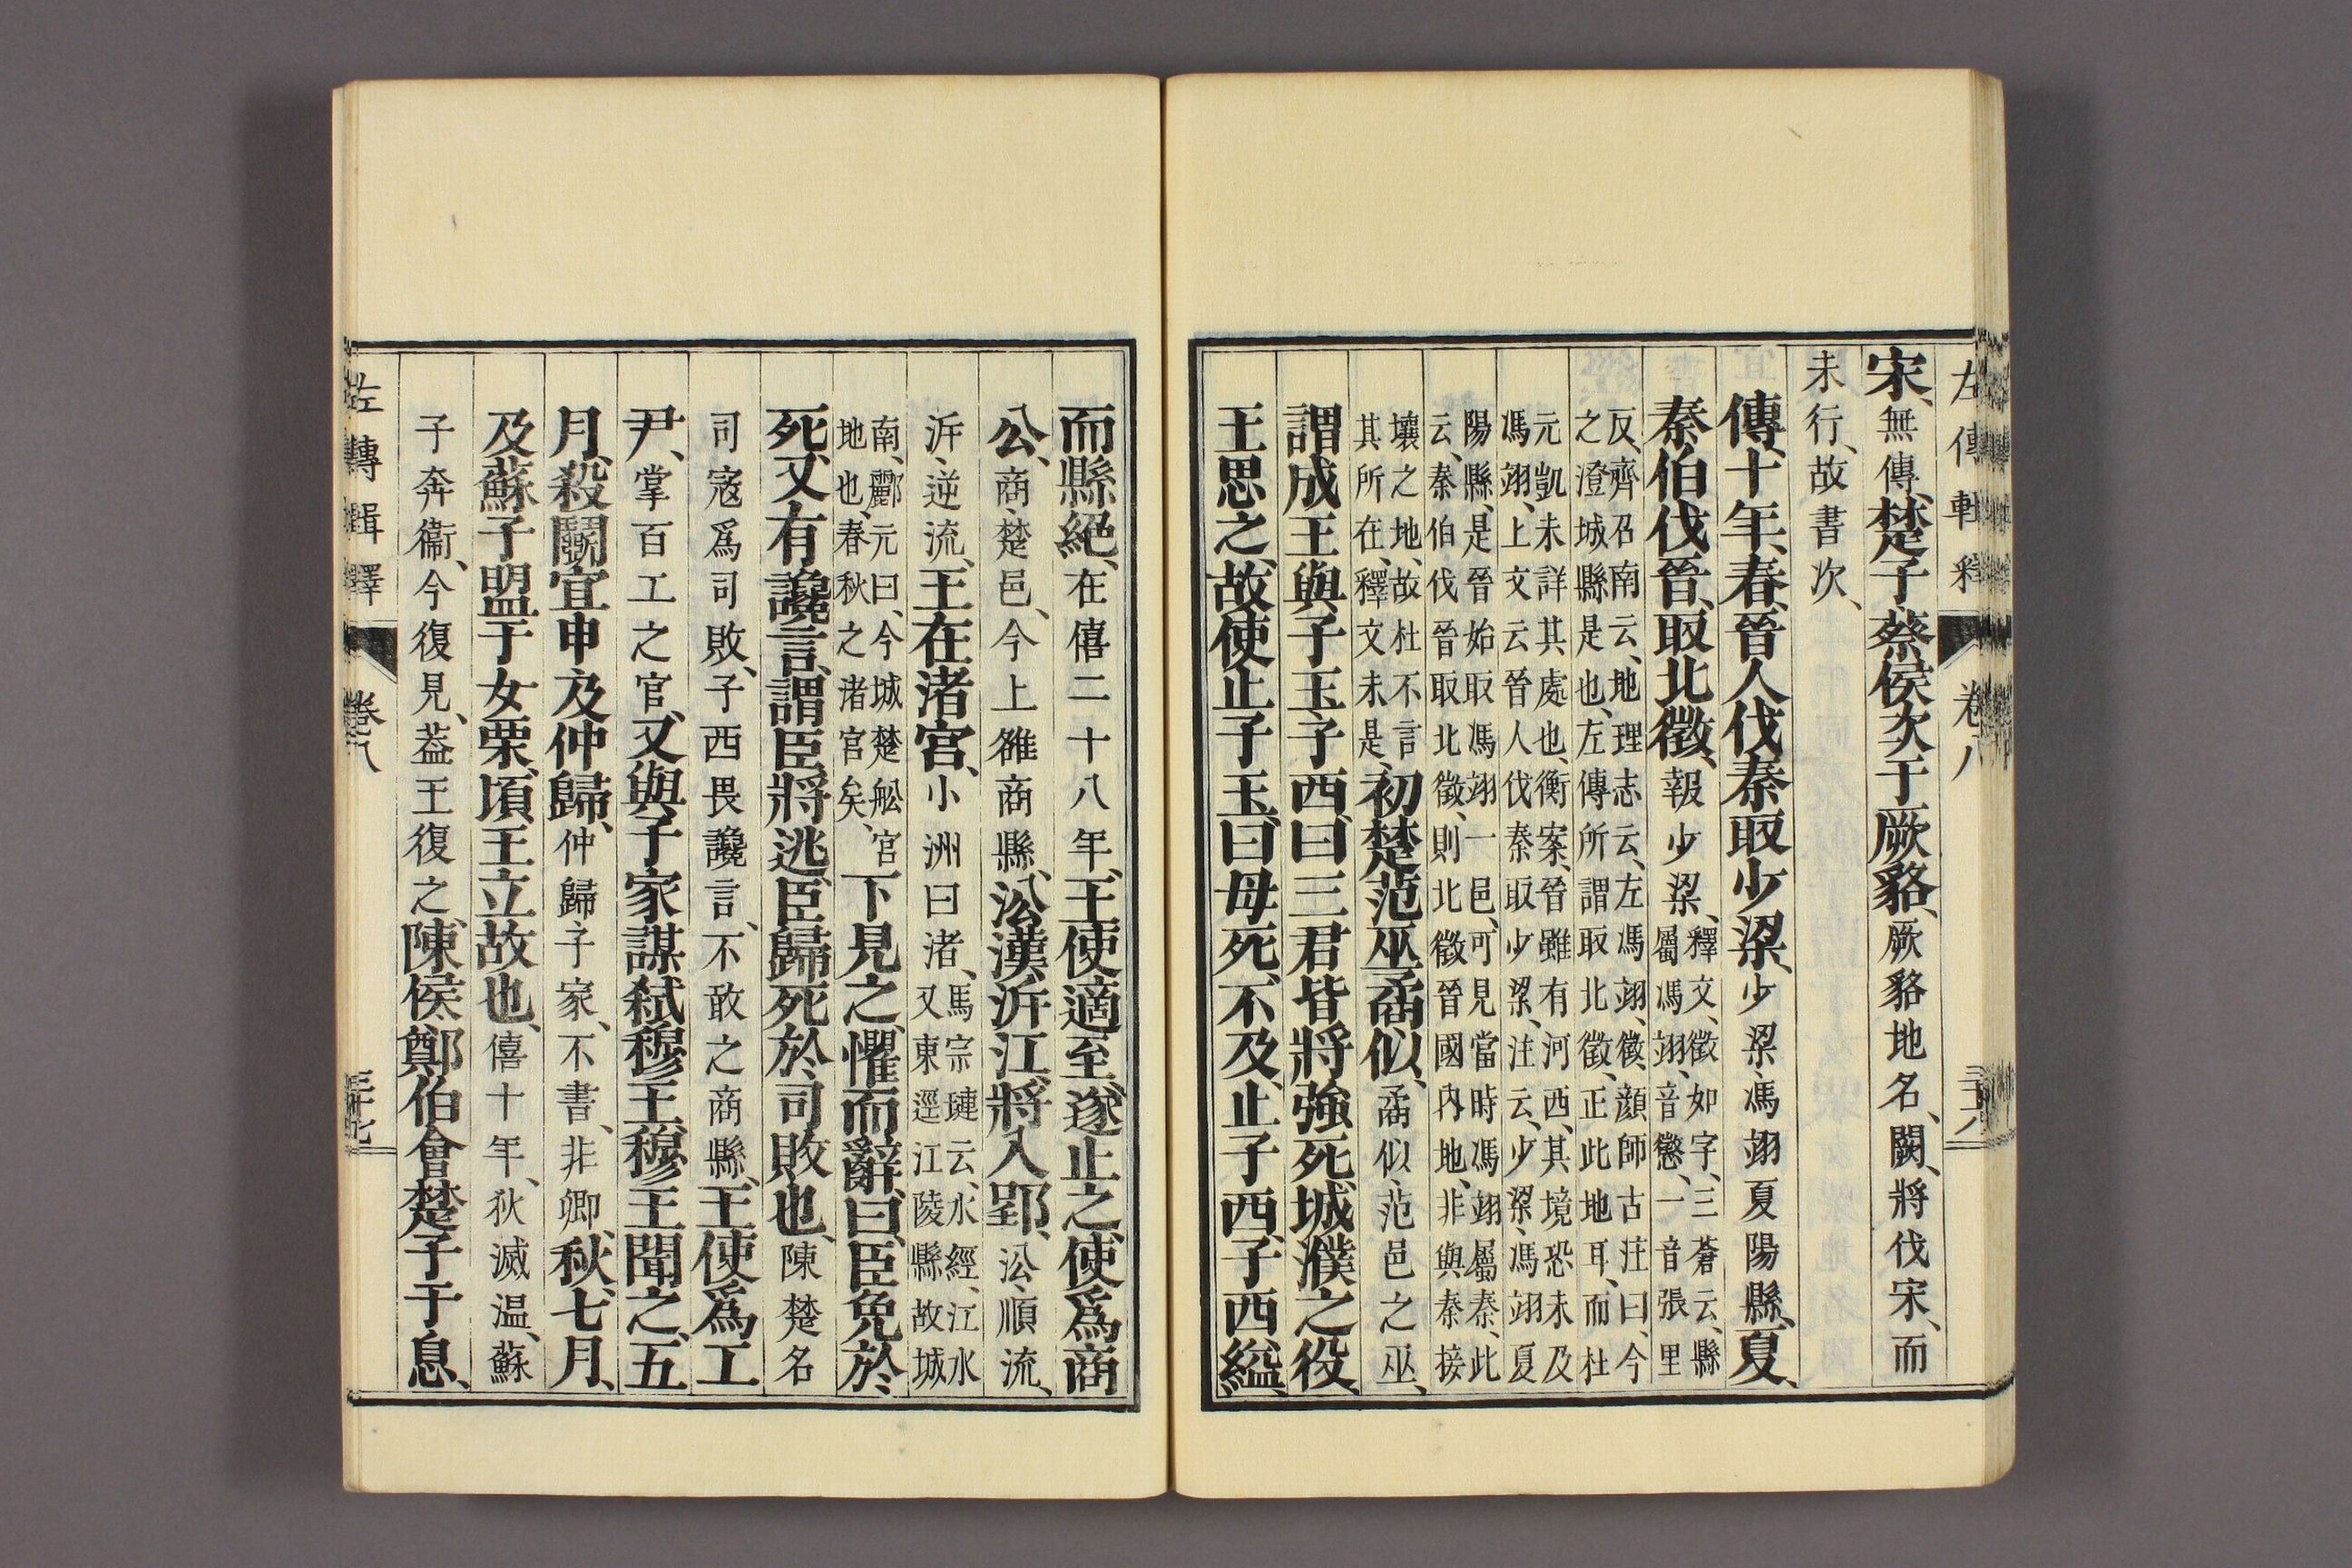 左傳輯釋 卷八
宋、無傳、楚子蔡侯次于厥貉、厥貉地名、闕、將伐宋、而
未行、故書次、
傳、十年、春、晉人伐秦取少梁、少梁、馮翊夏陽縣、夏、
秦伯伐晉、取北徵、報少梁、釋文、徵如字、三蒼云、縣
屬馮翊、音懲、一音張里
反、齊召南云、地理志云、左馮翊、徵、顏師古注曰、今
之澄城縣是也、左傳所謂取北徵、正此地耳、而杜
元凱未詳其處也、衡案、晉雖有河西、其境恐未及
馮翊、上文云晉人伐秦取少梁、注云、少梁、馮翊夏
陽縣、是晉始取馮翊一邑、可見當時馮翊屬秦、此
云、秦伯伐晉取北徵、則北徵晉國内地、非與秦接
壤之地、故杜不言
其所在、釋文未是、初楚范巫矞似、矞似、范邑之巫、
謂成王與子玉子西曰、三君皆將強死、城濮之役、
王思之、故使止子玉、曰毋死、不及、止子西、子西縊、
而縣絕、在僖二十八年、王使適至、遂止之、使爲商
公、商、楚邑、今上雒商縣、㳂漢泝江、將入郢、㳂、順流、
泝、逆流、王在渚宮、小洲曰渚、馬宗璉云、水經、江水
又東逕江陵縣故城
南、酈元曰、今城楚船官
地也、春秋之渚宮矣、下見之、懼而辭、曰、臣免於
死、又有讒言、謂臣將逃、臣歸死於司敗也、陳楚名
司寇爲司敗、子西畏讒言、不敢之商縣、王使爲工
尹、掌百工之官、又與子家謀弑穆王、穆王聞之、五
月、殺鬭宜申及仲歸、仲歸、子家、不書、非卿、秋、七月、
及蘇子盟于女栗、頃王立故也、僖十年、狄滅溫、蘇
子奔衞、今復見、葢王復之、陳侯鄭伯會楚子于息、
左傳輯釋 卷八 三十七